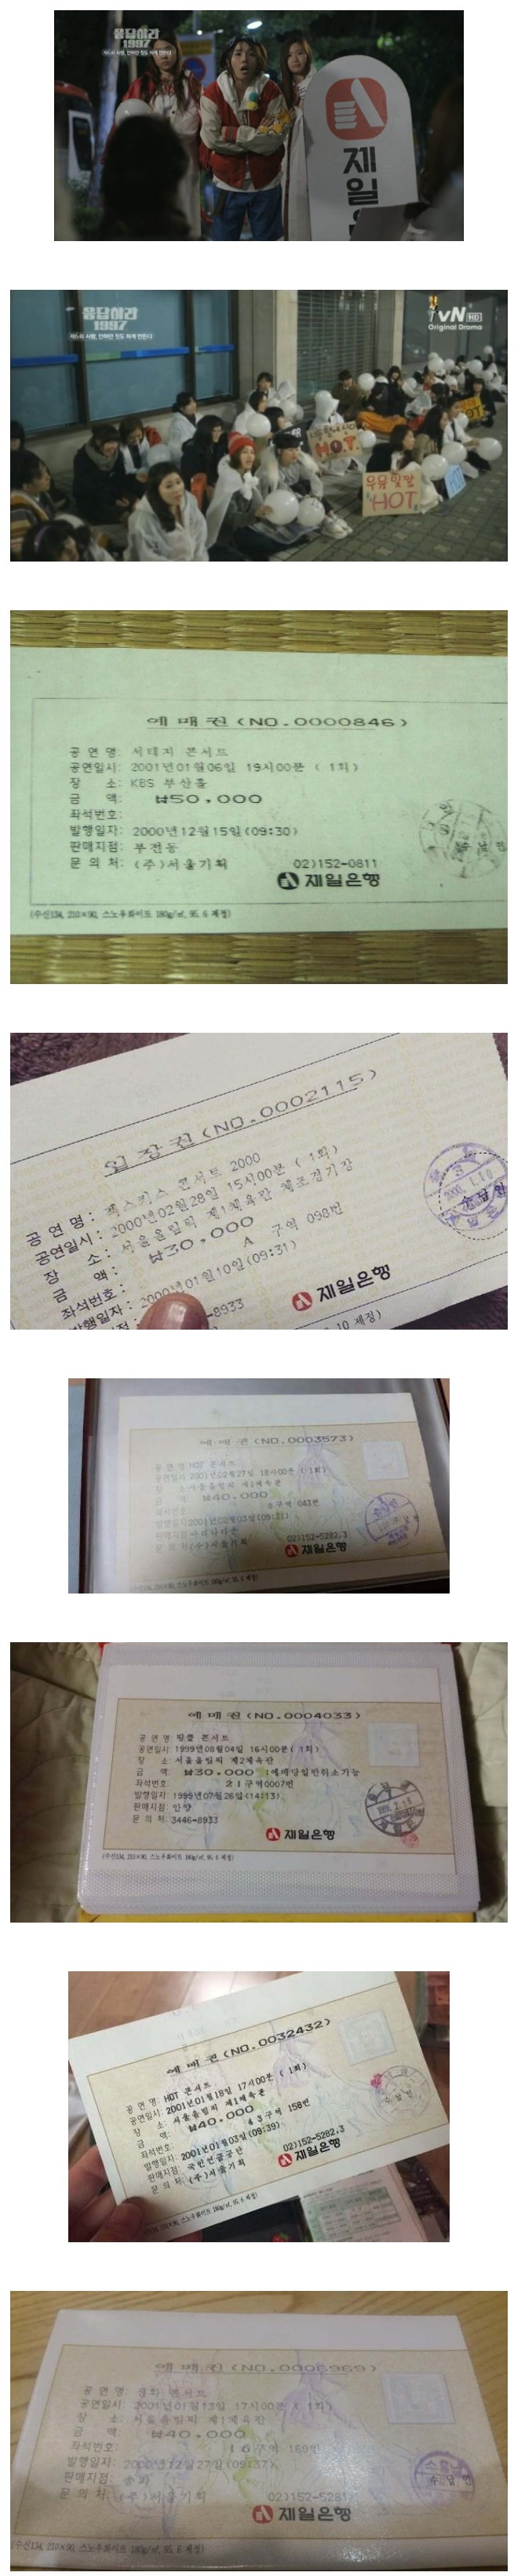 응답하라
1997
제
일
응답하라
1997
tvN HD
Original Drama
H.O.T.
HOT
우유빛깔
HOT
예매권(NO.0000846)
공 연 명: 서태지 콘서트
공연일시: 2001년01월06일 19시00분 ( 1회)
장 소: KBS 부산홀
금 액: ₩50,000
좌석번호:
발행일자: 2000년12월15일(09:30)
판매지점: 부전동
문 의 처: (주)서울기획 02)152-0811
제일은행
(수신134, 210×90, 스노우화이트 180g/㎡, 95. 6 제정)
입장권(NO.0002115)
공 연 명: 젝스키스 콘서트 2000
공연일시: 2000년02월28일 15시00분 ( 1회)
장 소: 서울올림픽 제1체육관 체조경기장
금 액: ₩30,000
좌석번호: A 구역 098번
발행일자: 2000년01월10일(09:31)
-8933
제일은행
10 제정)
2000.1.10
수납인
예매권(NO.0003573)
공 연 명: HOT 콘서트
공연일시: 2001년02월27일 18시00분 ( 1회)
장 소: 서울올림픽 제1체육관
금 액: ₩40,000
좌석번호: 구역 043번
발행일자: 2001년02월03일(09:31)
문 의 처: (주)서울기획 02)152-5282,3
제일은행
(수신134, 210×90, 스노우화이트 180g/㎡, 95. 6 제정)
예매권(NO.0004033)
공 연 명: 핑클 콘서트
공연일시: 1999년08월04일 16시00분( 1회)
장 소: 서울올림픽 제2체육관
금 액: ₩30,000 :예매당일만취소가능
좌석번호: 21구역0007번
발행일자: 1999년07월26일(14:13)
판매지점: 안양
문 의 처: 3446-8933
제일은행
(수신134, 210×90, 스노우화이트 180g/㎡, 95. 6 제정)
예매권(NO.0032432)
공 연 명: HOT 콘서트
공연일시: 2001년01월18일 17시00분 ( 1회)
장 소: 서울올림픽 제1체육관
금 액: ₩40,000
좌석번호: 43구역 158번
발행일자: 2001년01월03일(09:39)
판매지점: 국민연금공단
문 의 처: (주)서울기획 02)152-5282,3
제일은행
210×90, 스노우화이트 180g/㎡, 95. 6 제정)
예매권(NO.0008969)
공 연 명: 신화 콘서트
공연일시: 2001년01월13일 17시00분 ( 1회)
장 소: 서울올림픽 제1체육관
금 액: ₩40,000
좌석번호: 16구역 169번
발행일자: 2000년12월27일(09:37)
판매지점: 송파
문 의 처: (주)서울기획 02)152-5281
제일은행
(수신134, 210×90, 스노우화이트 180g/㎡, 95. 6 제정)
수납인